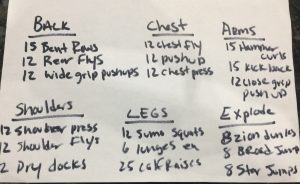 BACK
15 Bent Rows
12 Rear Flys
12 wide grip pushups
Chest
12 chest fly
12 pushup
12 chest press
Arms
15 Hammer
curls
15 kick back
12 close grip
push up
Shoulders
12 Shoulder press
12 Shoulder Flys
2 Dry docks
LEGS
12 Sumo Squats
6 lunges ea
25 Calf Raises
Explode
8
8 Broad Jump
8 Star Jumps